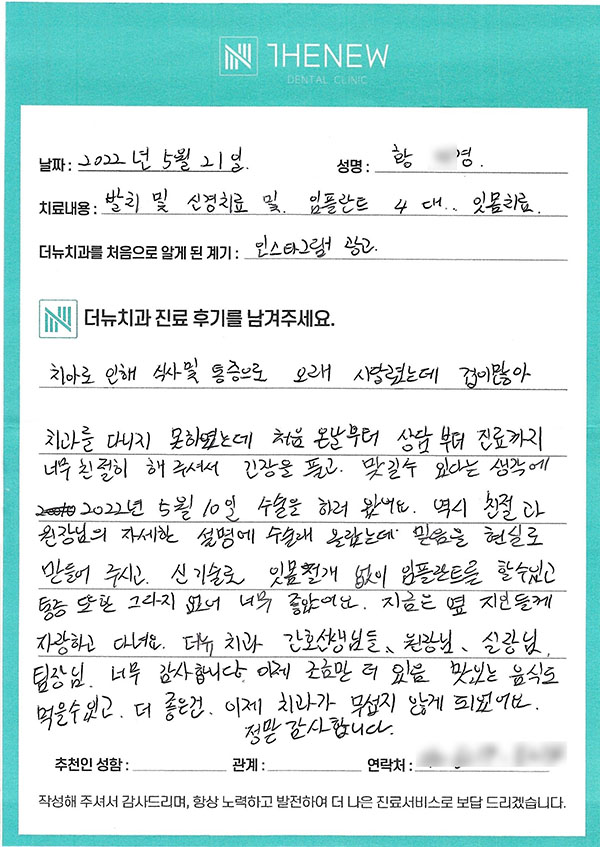 THENEW
DENTAL CLINIC
날짜 : 2022년 5월 21일. 성명 : 황 경.
치료내용 : 발치 및 신경치료 및. 임플란트 4 대.. 잇몸치료.
더뉴치과를 처음으로 알게 된 계기 : 인스타그램 광고.
더뉴치과 진료 후기를 남겨주세요.
치아로 인해 식사및 통증으로 오래 시달렸는데 겁이많아
치과를 다니지 못하였는데 처음 온날부터 상담 부터 진료까지
너무 친절히 해 주셔서 긴장을 풀고. 맡길수 있다는 생각에
2022년 5월 10일 수술을 하러 왔어요. 역시 친절과
원장님의 자세한 설명에 수술대 올랐는데 믿음을 현실로
만들어 주시고. 신기술로 잇몸절개 없이 임플란트를 할수있고
통증 또한 그다지 없어 너무 좋았어요. 지금은 옆 지인들께
자랑하고 다녀요. 더뉴 치과 간호선생님들、원장님、실장님、
팀장님. 너무 감사합니다. 이제 조금만 더 있음 맛있는 음식도
먹을수있고. 더 좋은건. 이제 치과가 무섭지 않게 되었어요.
정말 감사합니다.
추천인 성함 : 관계 : 연락처 :
작성해 주셔서 감사드리며, 항상 노력하고 발전하여 더 나은 진료서비스로 보답 드리겠습니다.